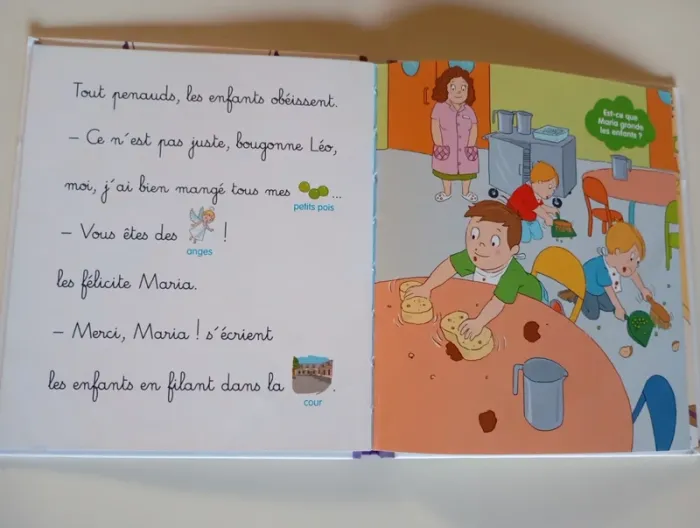 Tout penauds, les enfants obéissent.
– Ce n'est pas juste, bougonne Léo,
moi, j'ai bien mangé tous mes ...
petits pois
– Vous êtes des !
anges
les félicite Maria.
– Merci, Maria ! s'écrient
les enfants en filant dans la .
cour
Est-ce que
Maria gronde
les enfants ?